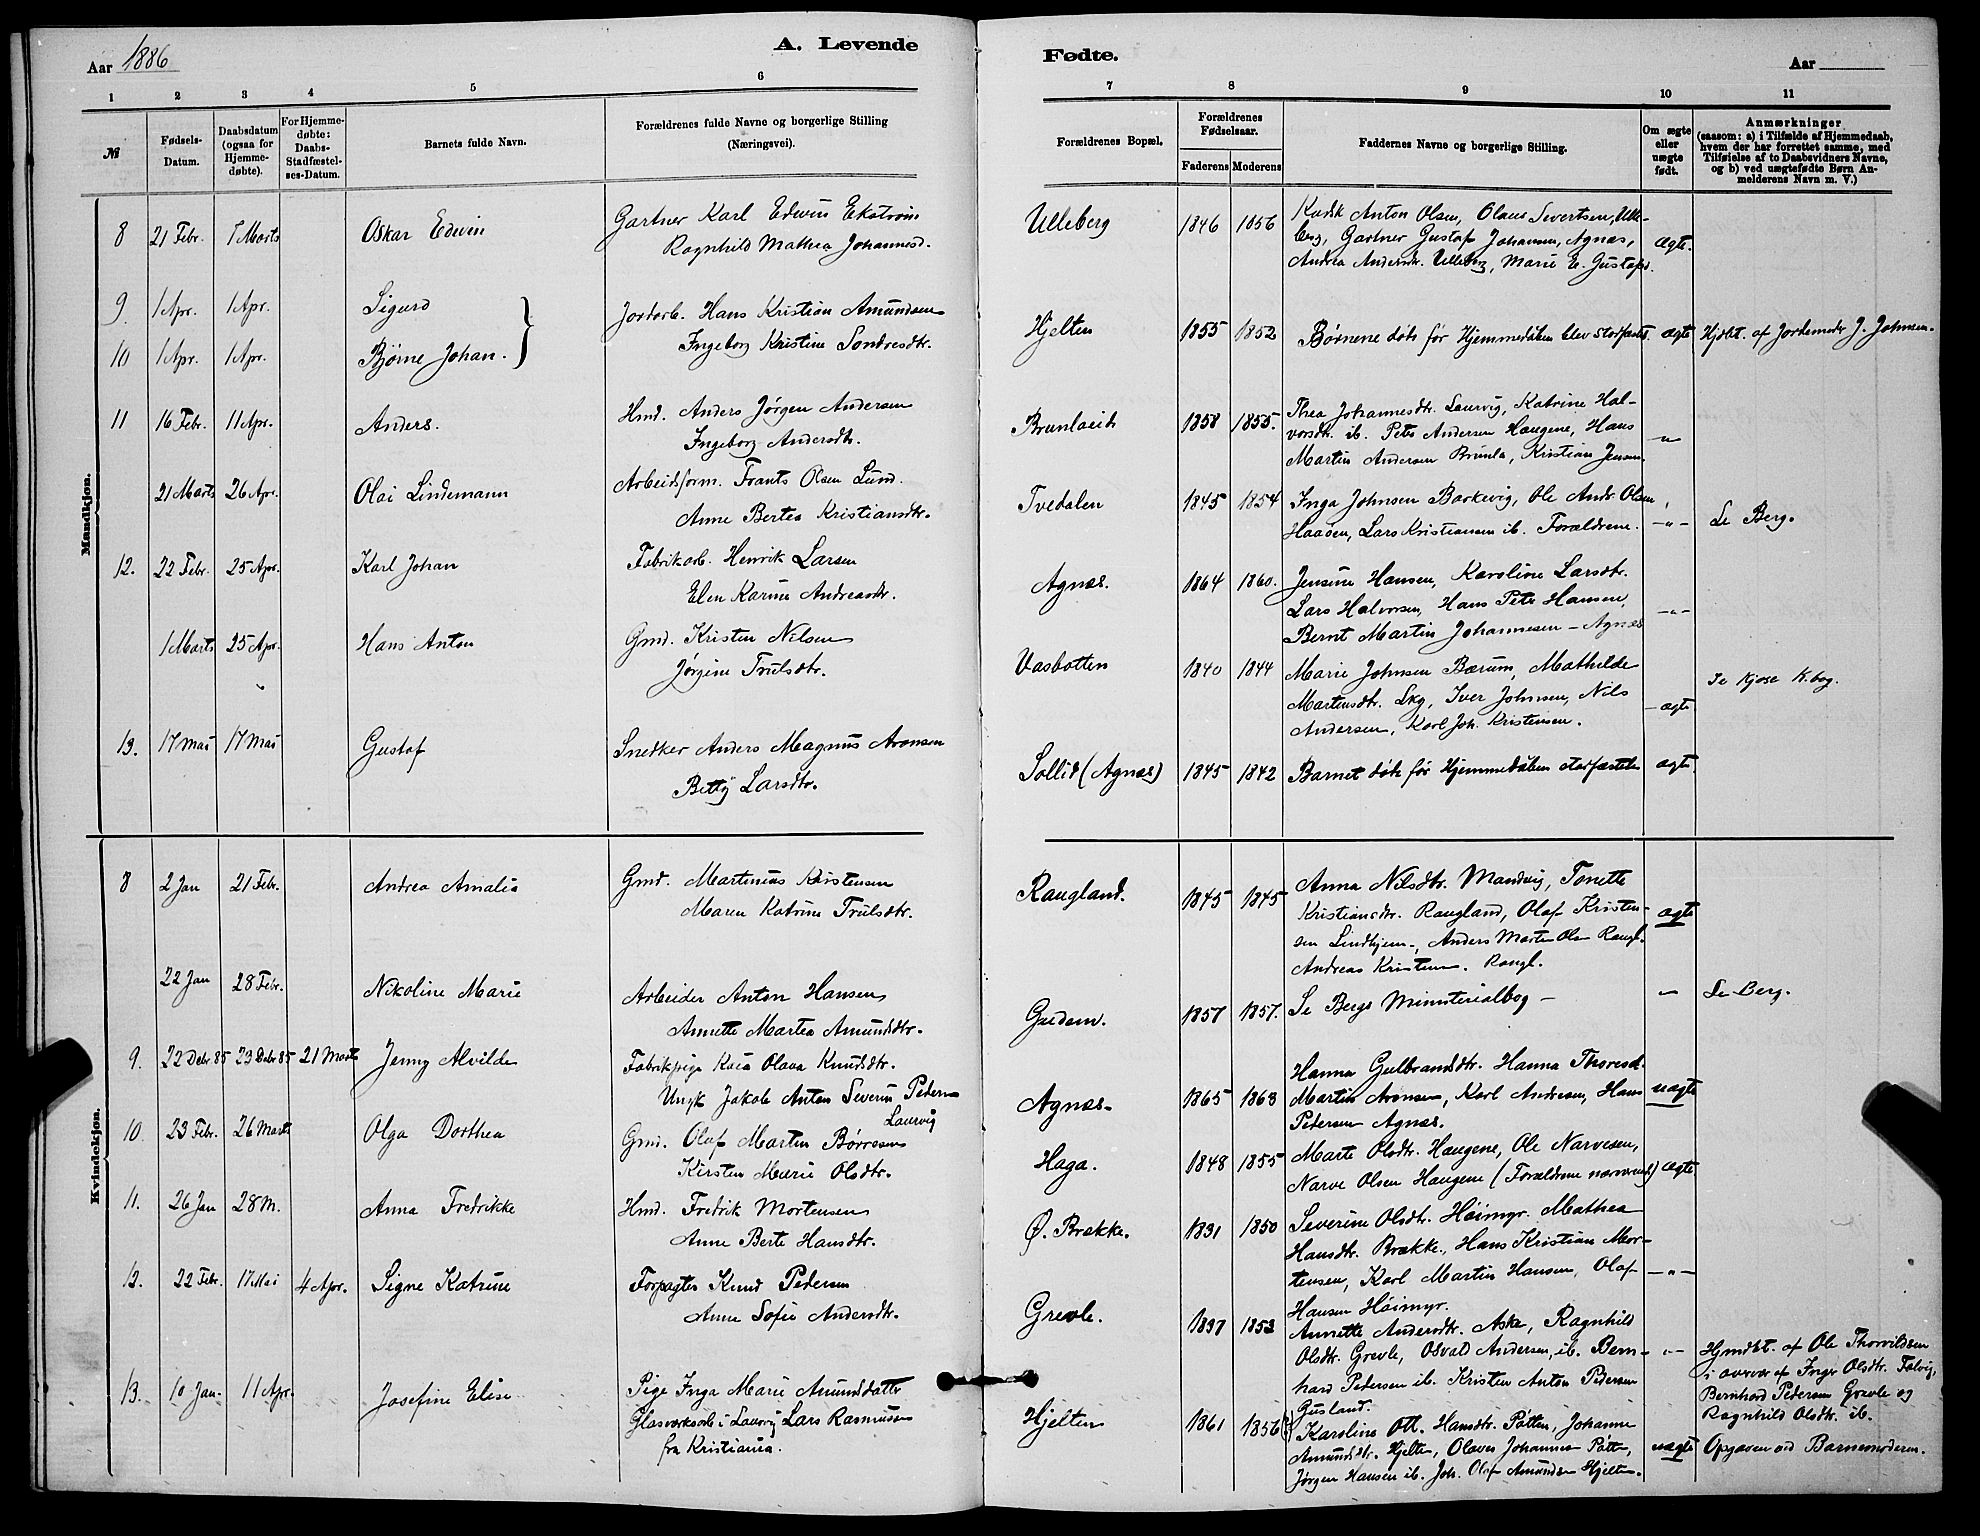 Aar 1886
A. Levende
Fødte.
Aar
1 2 3 4 5 6 7 8 9 10 11
№
Fødsels-
Datum.
Daabsdatum
(ogsaa for
Hjemme-
døbte).
For Hjemme-
døbte:
Daabs-
Stadfæstel-
ses-Datum.
Barnets fulde Navn.
Forældrenes fulde Navne og borgerlige Stilling
(Næringsvei).
Forældrenes Bopæl.
Forældrenes
Fødselsaar.
Faderens Moderens
Faddernes Navne og borgerlige Stilling.
Om ægte
eller
uægte
født.
Anmærkninger
(saasom: a) i Tilfælde af Hjemmedaab,
hvem der har forrettet samme, med
Tilføielse af to Daabsvidners Navne,
og b) ved uægtefødte Børn An-
melderens Navn m. V.)
Mandkjøn.
8 21 Febr. 7 Marts Oskar Edvin
Gartner Karl Edvin Ekstrøm
Ragnhild Mathea Johannesd.
Ulleberg 1846 1856
Kudsk Anton Olsen, Olaus Severtsen, Ulle-
berg, Gartner Gustaf Johansen, Agnæs,
Andrea Andersdr. Ulleberg, Marie E. Gustafsd.
ægte.
9. 1 Apr. 1 Apr. Sigurd
10 1 Apr. 1 Apr. Bjørne Johan.
Jordarb. Hans Kristian Amundsen
Ingeborg Kristine Sondresdtr.
Hjelten 1855 1852 Børnene døde før Hjemmedåben blev stadfæstet ægte Hjdbt. af Jordemoder J. Johnsen.
11 16 Febr. 11 Apr. Anders.
Hmd. Anders Jørgen Andersen
Ingeborg Andersdtr.
Brunlaeid 1858 1855.
Thea Johannesdtr. Laurvig, Katrine Hal-
vorsdtr. ib. Peter Andersen Haugene, Hans
Martin Andersen Brunla, Kristian Jensen.
—"—
21 Marts 26 Apr. Olai Lindemann
Arbeidsform. Frants Olsen Lund.
Anne Bertea Kristiansdtr.
Tvedalen 1845 1854
Inga Johnsen Barkevig, Ole Andr. Olsen
Haaøen, Lars Kristiansen ib. Forældrene.
—"— Se Berg.
12. 22 Febr. 25 Apr. Karl Johan
Fabrikarb. Henrik Larsen
Elen Karine Andreasdtr.
Agnæs. 1864 1860.
Jensine Hansen, Karoline Larsdtr.
Lars Halvorsen, Hans Peter Hansen,
Bernt Martin Johannesen - Agnæs
—"—
1 Marts 25 Apr. Hans Anton
Gmd. Kristen Nilsen
Jørgine Trulsdtr.
Vasbotten 1840 1844
Marie Johnsen Bærum, Mathilde
Martensdtr. Skg, Iver Johnsen, Nils
Andersen, Karl Joh. Kristensen.
ægte Se Kjose K.bog.
13. 17 Mai 17 Mai Gustaf
Snedker Anders Magnus Aronsen
Betty Larsdtr.
Sollid (Agnæs) 1845 1842 Barnet døde før Hjemmedåben stadfæstedes ægte
Kvindekjøn.
8 2 Jan 21 Febr. Andrea Amalia
Gmd. Martinius Kristensen
Maren Katrine Trulsdtr.
Raugland. 1845 1845
Anna Nilsdtr. Mandvig, Tonette
Kristiansdtr. Raugland, Olaf Kristen-
sen Lindhjem, Anders Martin Olsen Raugl.
Andreas Kristensen. Raugl.
ægte
22 Jan 28 Febr. Nikoline Marie
Arbeider Anton Hansen
Annette Martea Amundsdtr.
Gredem. 1857 1857. Se Bergs Ministerialbog — —"— Se Berg.
9. 22 Debr 85 23 Debr 85 21 Marts Jenny Alvilde
Fabrikpige Kaia Olava Knudsdtr.
Ungk Jakob Anton Severin Pedersen
Laurvig
Agnæs. 1865 1863
Hanna Gulbrandsdtr. Hanna Thoresd.
Martin Aronsen, Karl Andresen, Hans
Pedersen Agnæs.
uægte
10. 23 Febr. 26 Marts Olga Dorthea
Gmd. Olaf Martin Børresen
Kirsten Marie Olsdtr.
Haga. 1848 1855
Marte Olsdtr. Haugene, Ole Narvesen,
Narve Olsen Haugene (Forældrene nærværende) ægte
11. 26 Jan 28 M. Anna Fredrikke
Hmd. Fredrik Mortensen
Anne Berte Hansdtr.
Ø. Brække. 1831 1850
Severine Olsdtr. Høimyr. Mathea
Hansdtr. Brække, Hans Kristian Mor-
tensen, Karl Martin Hansen, Olaf
Hansen Høimyr.
—"—
12. 22 Febr. 17 Mai 4 Apr. Signe Katrine
Forpagter Knud Pedersen
Anne Sofie Andersdtr.
Grevle. 1837 1853
Annette Andersdtr. Aske, Ragnhild
Olsdtr. Grevle, Osvald Andersen, ib. Bern-
hard Pedersen ib. Kristen Anton Pedersen
Gusland.
—"—
Hjmdbt. af Ole Thorvildsen
i overvær af Inger Olsdtr. Falvig,
Bernhard Pedersen Grevle og
Ragnhild Olsdtr. ib.
13. 10 Jan. 11 Apr. Josefine Elise
Pige Inga Marie Amundsdatter
Glasværksarb. i Laurvig Lars Rasmussen
fra Kristiania.
Hjelten 1861 1856
Karoline Ott. Hansdtr. Pøtten, Johanne
Amundsdtr. Hjelte, Olaves Johannes Pøtte,
Jørgen Hansen ib. Joh. Olaf Amundsen Hjelten.
uægte Opgaven ved Barnemoderen.